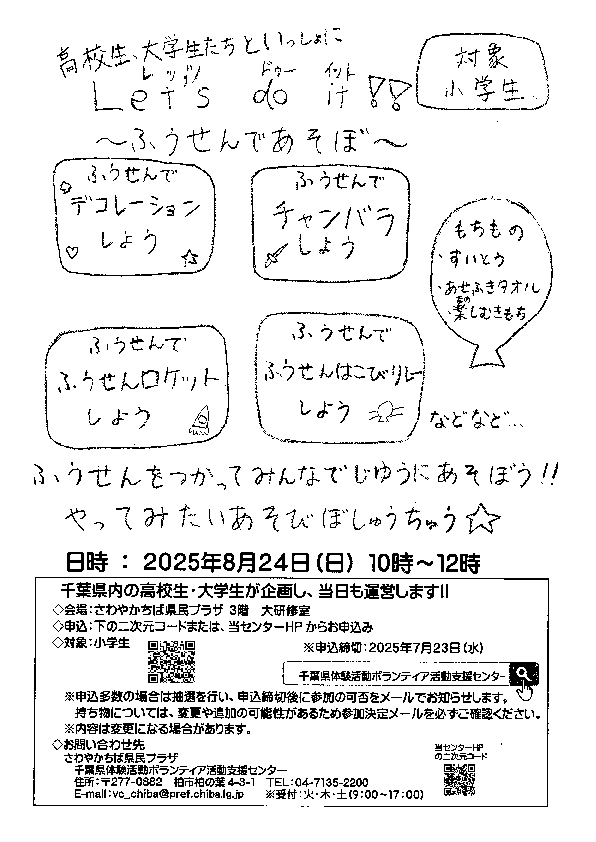 高校生、大学生たちといっしょに
レッツ ドゥー イット
Let's do it!!
対象
小学生
～ふうせんであそぼ～
ふうせんで
デコレーション
しよう
ふうせんで
チャンバラ
しよう
もちもの
・すいとう
・あせふきタオル
・楽しむきもち
たの
ふうせんで
ふうせんロケット
しよう
ふうせんで
ふうせんはこびリレー
しよう
などなど…
ふうせんをつかってみんなでじゆうにあそぼう!!
やってみたいあそびぼしゅうちゅう☆
日時 ： 2025年8月24日(日) 10時～12時
千葉県内の高校生・大学生が企画し、当日も運営します!!
◇会場：さわやかちば県民プラザ 3階 大研修室
◇申込：下の二次元コードまたは、当センターHPからお申込み
◇対象：小学生
※申込締切：2025年7月23日(水)
千葉県体験活動ボランティア活動支援センター
※申込多数の場合は抽選を行い、申込締切後に参加の可否をメールでお知らせします。
持ち物については、変更や追加の可能性があるため参加決定メールを必ずご確認ください。
※内容は変更になる場合があります。
◇お問い合わせ先
さわやかちば県民プラザ
千葉県体験活動ボランティア活動支援センター
住所：〒277-0882 柏市柏の葉4-3-1 TEL：04-7135-2200
E-mail：vc_chiba@pref.chiba.lg.jp ※受付：火・木・土(9:00～17:00)
当センターHP
の二次元コード